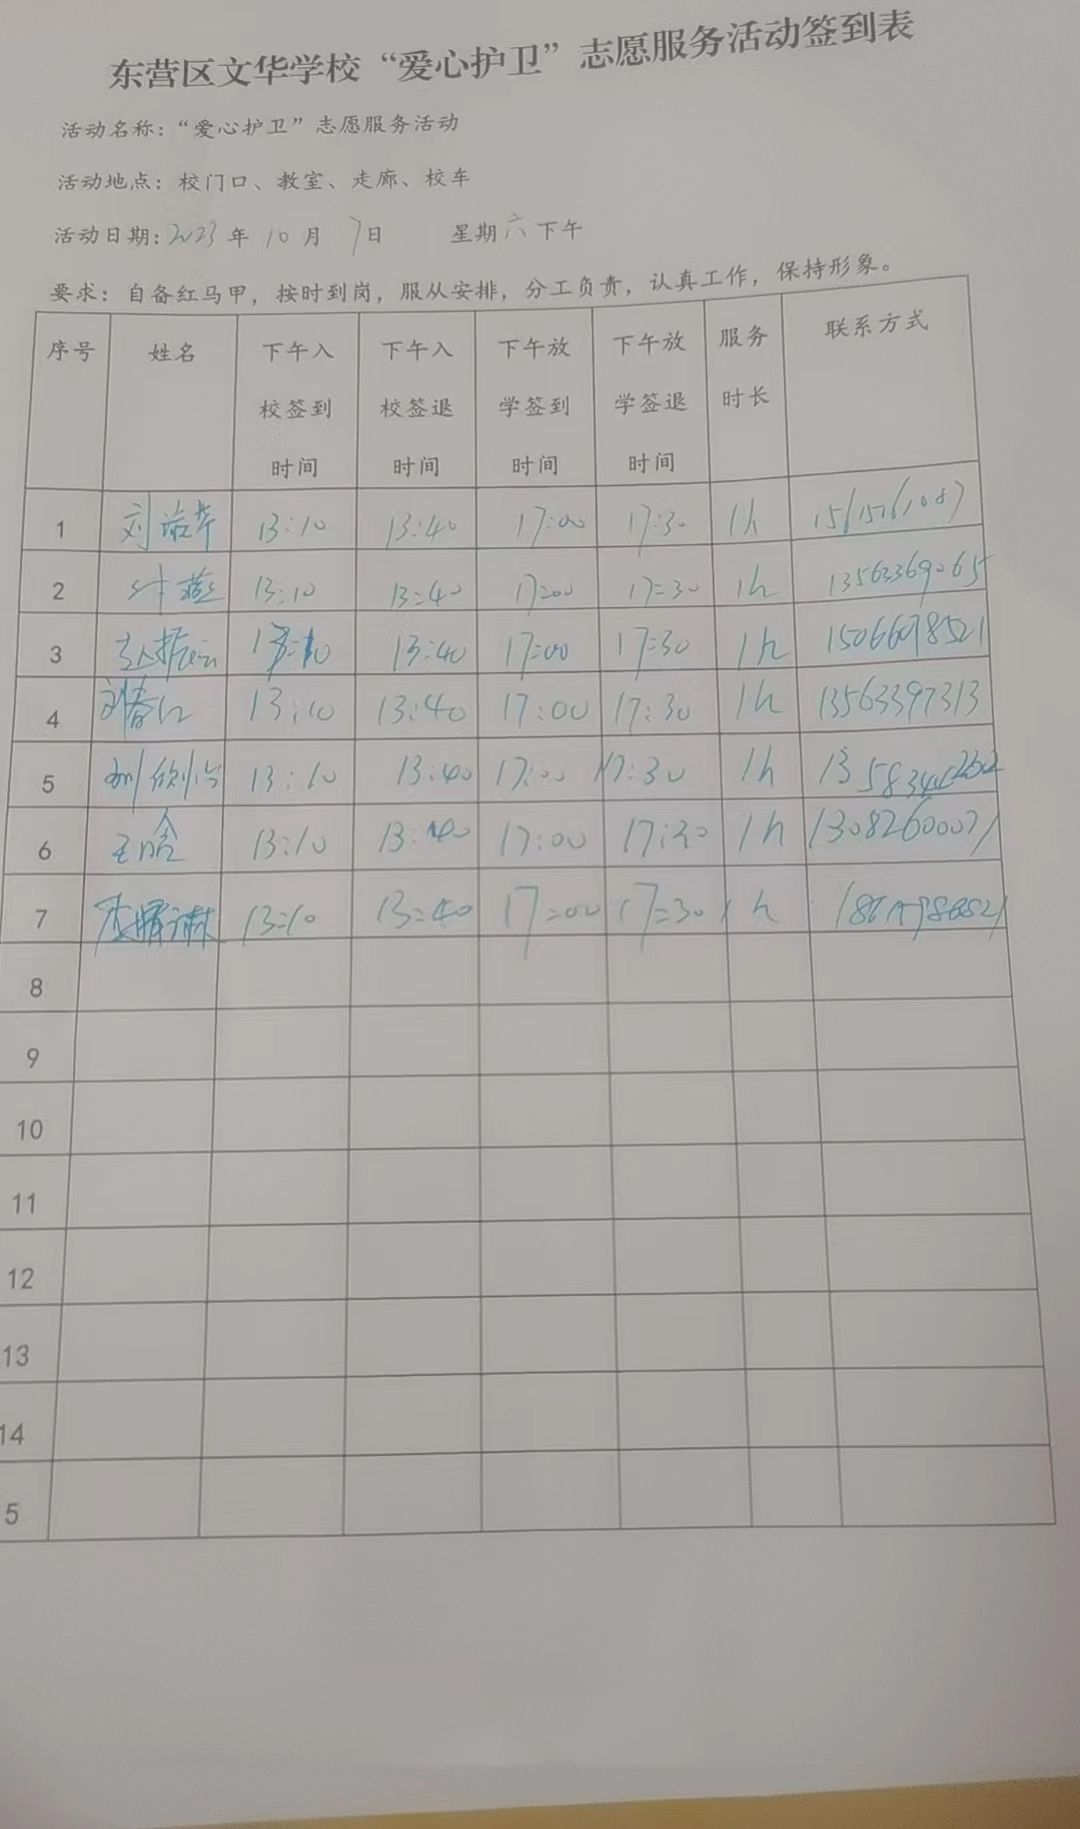 东营区文华学校“爱心护卫”志愿服务活动签到表
活动名称：“爱心护卫”志愿服务活动
活动地点：校门口、教室、走廊、校车
活动日期：2023年10月7日 星期六下午
要求：自备红马甲，按时到岗，服从安排，分工负责，认真工作，保持形象。
序号 姓名 下午入校签到时间 下午入校签退时间 下午放学签到时间 下午放学签退时间 服务时长 联系方式
1 13:10 13:40 17:00 17:30 1h
2 13:10 13:40 17:00 17:30 1h 13563369065
3 13:40 17:00 17:30 1h 15066098521
4 刘春江 13:10 13:40 17:00 17:30 1h 13563397313
5 刘欣怡 13:10 13:40 17:00 17:30 1h
6 王晗 13:10 13:40 17:00 17:30 1h 13082600071
7 13:10 13:40 17:00 17:30 1h
8
9
10
11
12
13
14
5